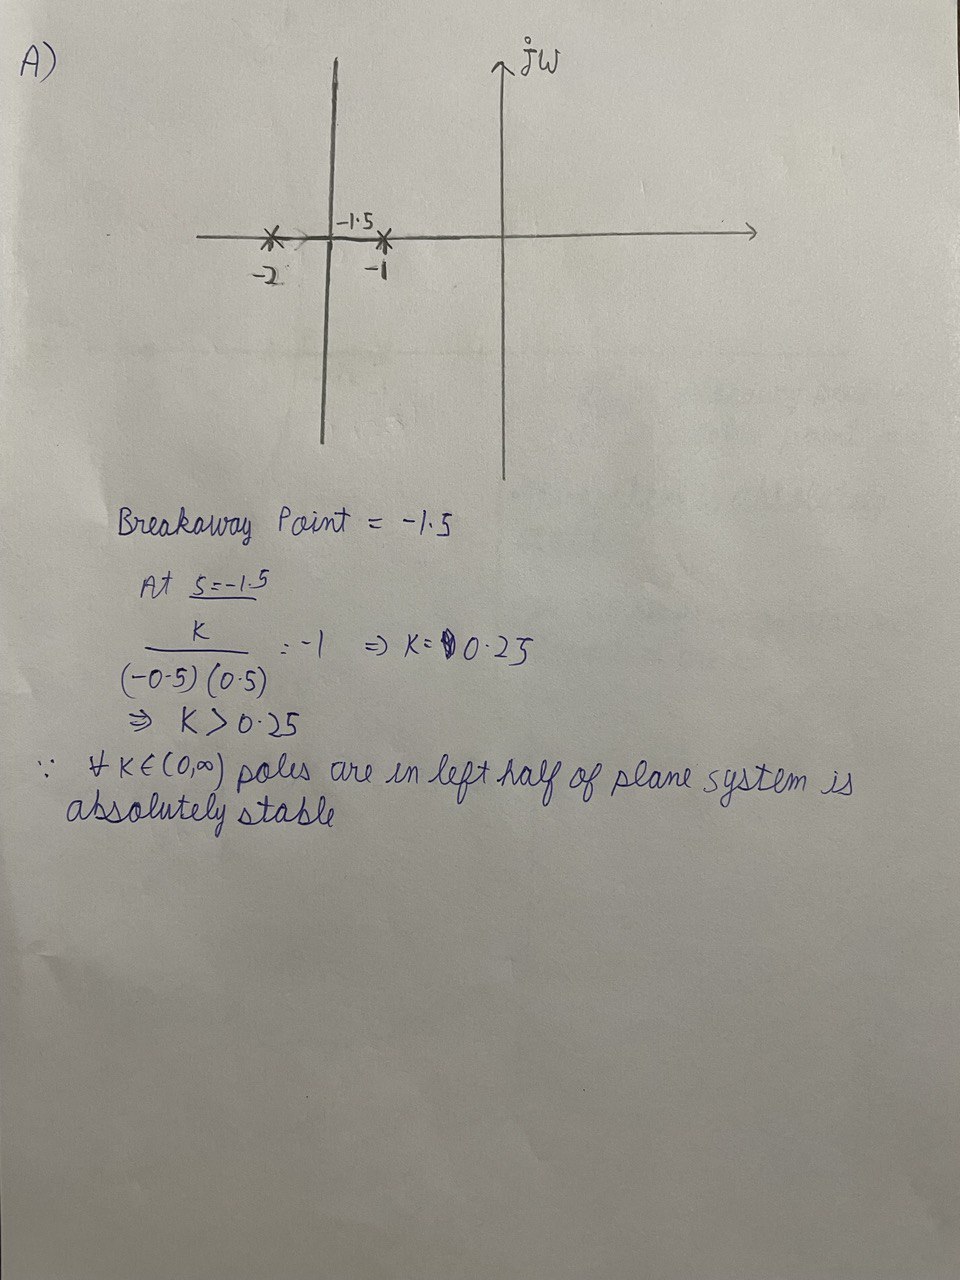 A)
jω
-1.5
-2
-1
Breakaway Point = -1.5
At s=-1.5
K
/(-0.5)(0.5) = -1 ⇒ K= 0.25
⇒ K > 0.25
∵ ∀ K ∈ (0,∞) poles are in left half of plane system is
absolutely stable